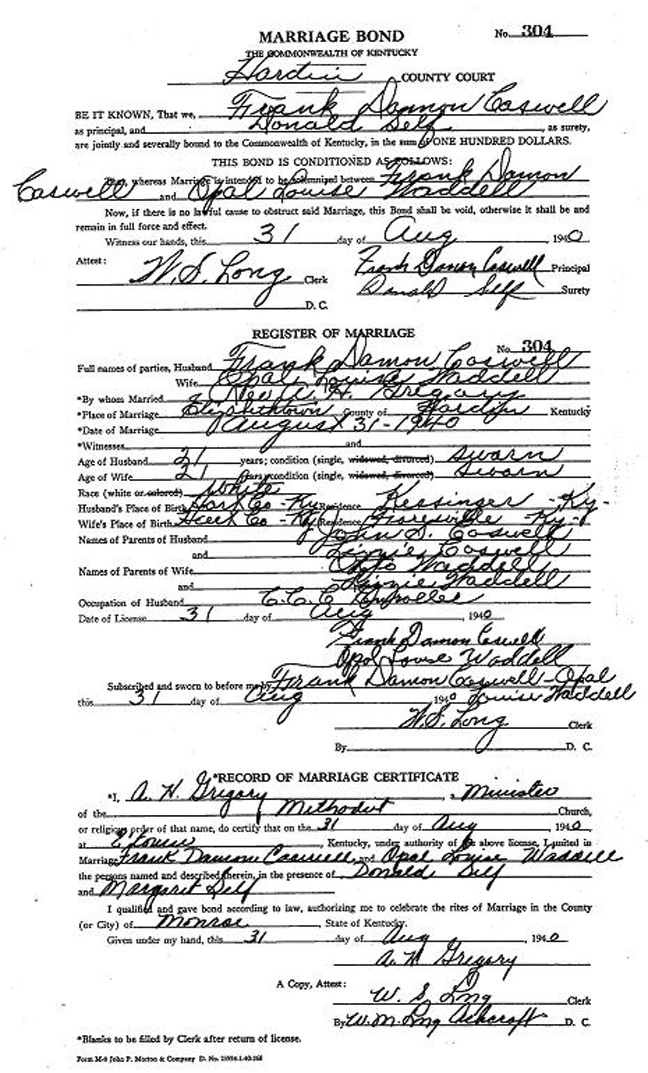 MARRIAGE BOND No. 304
THE COMMONWEALTH OF KENTUCKY
Hardin COUNTY COURT
BE IT KNOWN, That we, Frank Damon Caswell
as principal, and Donald Self, as surety,
are jointly and severally bound to the Commonwealth of Kentucky, in the sum of ONE HUNDRED DOLLARS.
THIS BOND IS CONDITIONED AS FOLLOWS:
whereas Marriage is intended to be solemnized between Frank Damon
Caswell and Opal Louise Waddell
Now, if there is no lawful cause to obstruct said Marriage, this Bond shall be void, otherwise it shall be and
remain in full force and effect.
Witness our hands, this 31 day of Aug 1940
Attest: W. S. Long Clerk Frank Damon Caswell Principal
Donald Self Surety
D. C.
REGISTER OF MARRIAGE
No. 304
Full names of parties, Husband Frank Damon Caswell
Wife Opal Louise Waddell
*By whom Married Rev A. H. Gregory
*Place of Marriage Elizabethtown County of Hardin Kentucky
*Date of Marriage August 31-1940
*Witnesses and
Age of Husband 21 years; condition (single, widowed, divorced) Sworn
Age of Wife 21 years; condition (single, widowed, divorced) Sworn
Race (white or colored) White
Husband's Place of Birth Hart Co - Ky Residence Kessinger - Ky -
Wife's Place of Birth Co - Ky Residence - Ky -
Names of Parents of Husband John S. Caswell
and Caswell
Names of Parents of Wife Waddell
and Waddell
Occupation of Husband C.C.C. Enrollee
Date of License 31 day of Aug, 1940
Frank Damon Caswell
Opal Louise Waddell
Subscribed and sworn to before me by Frank Damon Caswell - Opal
this 31 day of Aug 1940 Louise Waddell
W. S. Long Clerk
By D. C.
*RECORD OF MARRIAGE CERTIFICATE
*I, A. H. Gregory, Minister
of the Methodist Church,
or religious order of that name, do certify that on the 31 day of Aug, 1940,
at E'town, Kentucky, under authority of the above license, I united in
Marriage Frank Damon Caswell and Opal Louise Waddell
the persons named and described therein, in the presence of Donald Self
and Margaret Self
I qualified and gave bond according to law, authorizing me to celebrate the rites of Marriage in the County
(or City) of Monroe, State of Kentucky.
Given under my hand, this 31 day of Aug, 1940
A. H. Gregory
A Copy, Attest:
W. S. Long Clerk
By W. M. Long Ashcraft D. C.
*Blanks to be filled by Clerk after return of license.
Form M-8 John P. Morton & Company D. No.